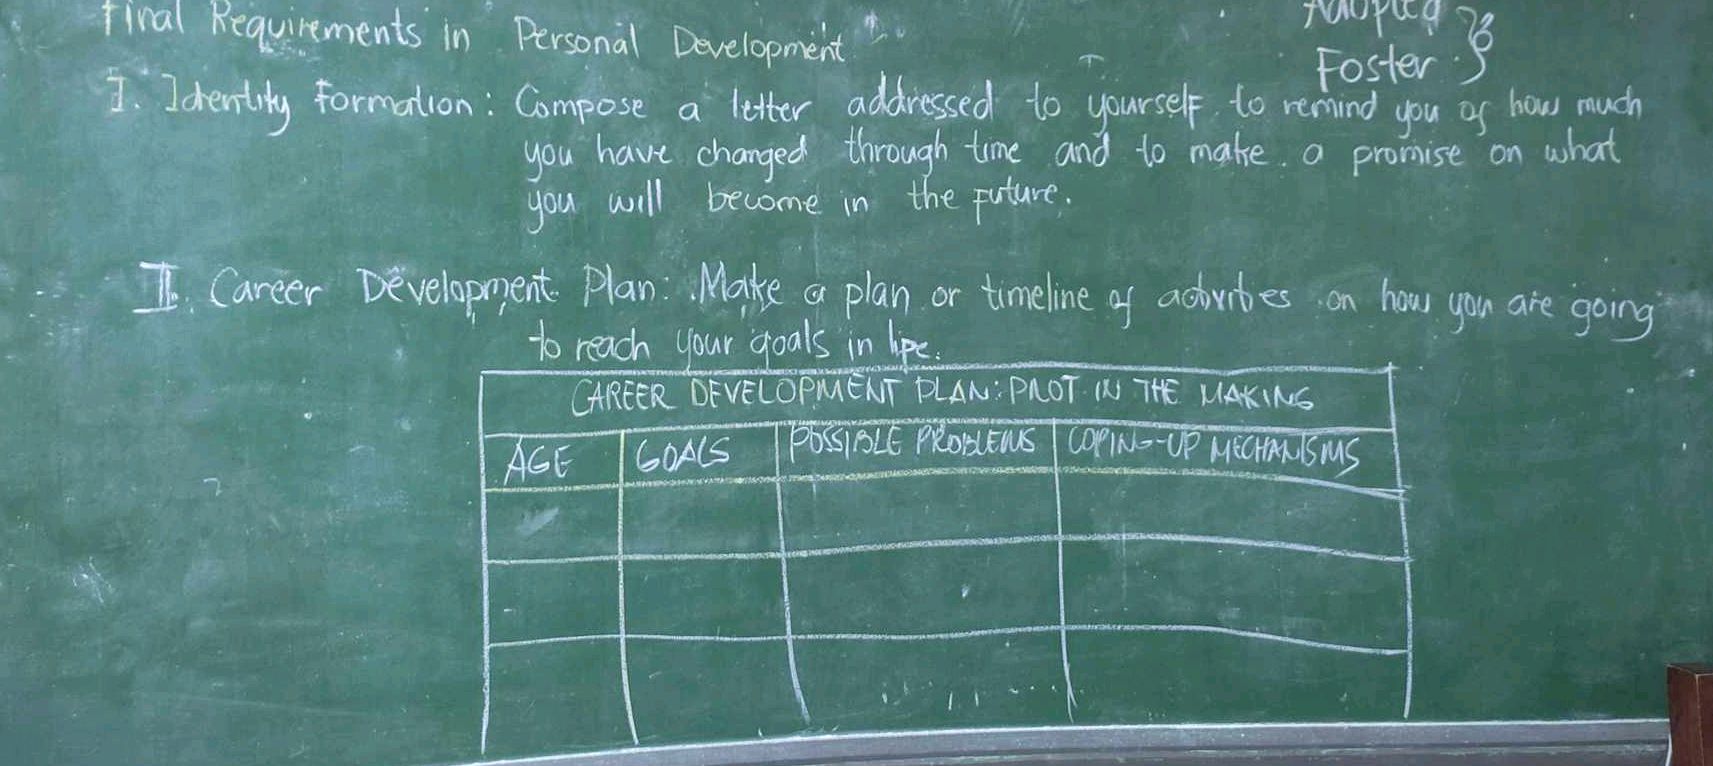 Final Requirements in Personal Development
Adopted
Foster
I. Identity Formation: Compose a letter addressed to yourself to remind you of how much
you have changed through time and to make a promise on what
you will become in the future.
II. Career Development Plan: Make a plan or timeline of activities on how you are going
to reach your goals in life.
CAREER DEVELOPMENT PLAN: PILOT IN THE MAKING
AGE GOALS POSSIBLE PROBLEMS COPING-UP MECHANISMS